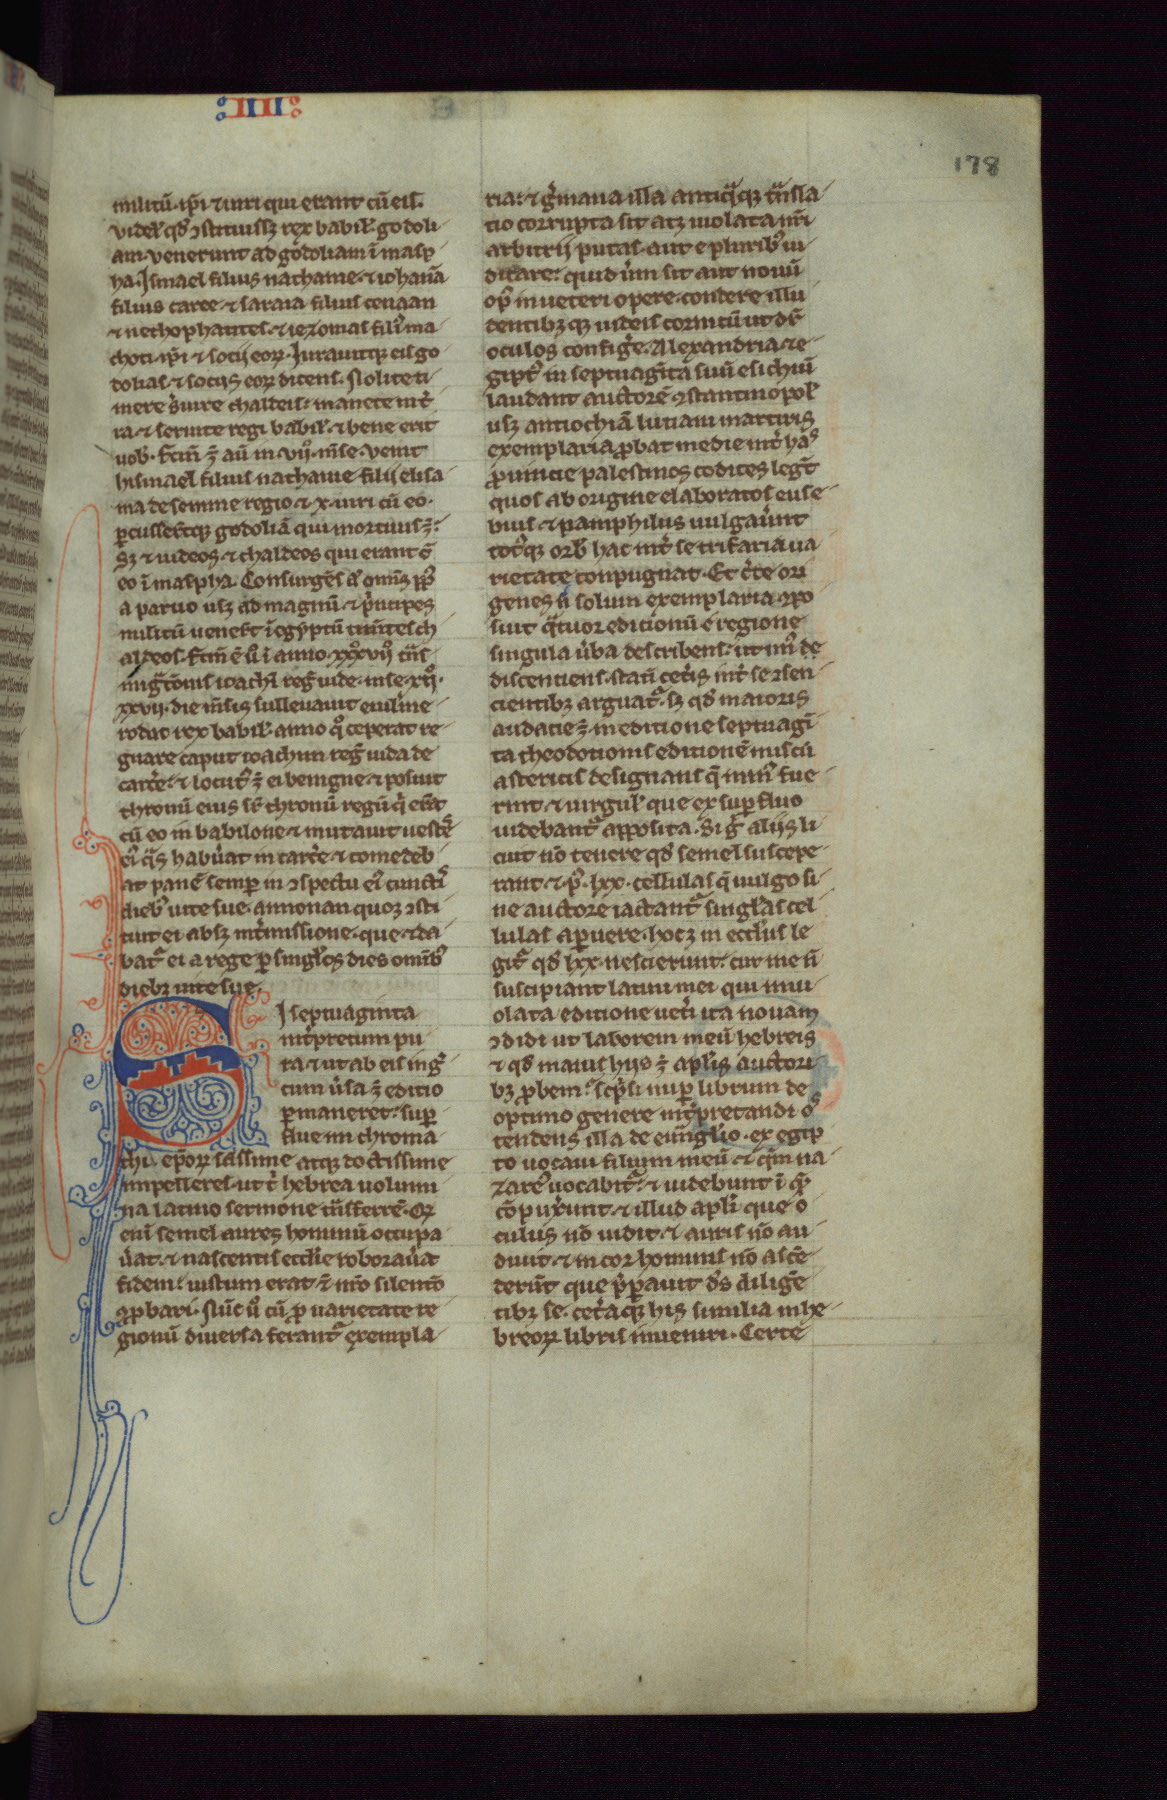 IIII
178
militū. ip̄i ⁊ uiri qui erant cū eis.
videl' qd̄ ꝯstituissꝫ rex babil'. godoli
am. venerunt ad godoliam ī masp
ha. Ismael filius nathanie. ⁊ iohanā
filius caree. ⁊ saraia filius cenaan
⁊ nethophatites. ⁊ iezonias fili' ma
choti. ip̄i ⁊ socij eorꝝ. Iurauitqꝫ eis go
dolias. ⁊ socijs eorꝝ dicens. Nolite ti
mere ẜuire chaldeis. manete int̄
ra. ⁊ seruite regi babil'. ⁊ bene erit
uob'. Fc̄m ꝫ aū in .vii°. mense. venit
hismael filius nathanie filij elisa
ma de semine regio ⁊ .x. uiri cū eo.
ꝑcusser̄tqꝫ godoliā qui mortuus ꝫ.
sꝫ ⁊ iudeos. ⁊ chaldeos qui erant c̄
eo ī maspha. Consurgēs oīs pp̄s
a paruo usꝫ ad magnū. ⁊ pͥncipes
militū uener̄t ī egyptū timētes ch
aldeos. Fc̄m ē u° ī anno .xxx°vii°. tͣns
migͣtonis ioachī reḡ iude. mense .xii°.
xxvii. die mensis subleuauit euilme
rodac rex babil'. anno qͦ ceperat re
gnare caput ioachim reḡ iuda de
carcͤe. ⁊ locut' ꝫ ei benigne. ⁊ posuit
thronū eius sr̄ thronū regū qͥ erāt
cū eo in babilone. ⁊ mutauit uestē
ei' qͣs habuat in carcͤe ⁊ comedeb
at panē semꝑ in ꝯspectu ei' cunctis
dieb' uite sue. annonan quoqꝫ ꝯsti
tuit ei absꝫ int̄missione. que ⁊ da
bat̄ ei a rege ꝑ singl'os dies omīb'
diebꝫ uite sue.
Si septuaginta
int̄pretum pu
ra. ⁊ ut ab eis in gͤ
cum uͤsa ꝫ editio
ꝑmaneret. suꝑ
flue mi chroma
thi. ep̄orꝝ sc̄issime atqꝫ doctissime
impelleres. ut tͥ hebrea uolumi
na latino sermone tͣnsferrē. Qꝺ
enī semel aures hominū occupa
uāt. ⁊ nascentis ecclīe roborauāt
fidem. iustum erat ē nr̄o silentō
ꝓbari. Nūc u° cū ꝓ varietate re
gionū diuersa ferant̄ exempla
ria. ⁊ gͤmana illa antiqͣqꝫ tͣnsla
tio corrupta sit atqꝫ uiolata. nr̄i
arbitrij putas. aut e plurib' iu
dicare. quid uͤm sit aut nouū
op' in ueteri opere. condere illu
dentibꝫqꝫ iudeis cornicū ut dr̄
oculos configͤe. Alexandria. ⁊ e
gipt' in septuagīta suū esichiū
laudant auctorē. ꝯstantinopol'
usꝫ antiochiā luciani martiris
exemplaria ꝓbat. medie int̄ has
ꝓuincie palestinos codices legūt
quos ab origine elaboratos euse
bius. ⁊ pamphilus uulgauūnt
totꝰqꝫ orb' hac int̄ se trifaria ua
rietate conpugnat. Et cͤte ori
genes n̄ solum exemplaria ꝯpo
suit qͣtuor editionū e regione
singula uͤba describens. ut un' de
discentiens. statī cetͤis int̄ se ꝯsen
cientibꝫ arguat̄. sꝫ qd̄ maioris
audacie ꝫ. in editione septuagī
ta theodotionis editionē miscu
astericis designans qͣ min' fue
rint. ⁊ uirgul' que ex suꝑfluo
uidebant̄ apposita. Si gͦ alijs li
cuit nō tenere qd̄ semel suscepe
rant. ⁊ p' .lxx. cellulas qͣ uulgo si
ne auctore iactant̄. singl'as cel
lulas aꝑuere. hocqꝫ in eccl'iis le
git̄ qd̄ lxx. nescierunt. cur me n̄
suscipiant latini mei. qui inui
olata editione uetͥi ita nouam
ꝯdidi. ut laborem meū hebreis
⁊ qd̄ maius hijs ꝫ apl'is auctori
bꝫ ꝓbem. Scͥpsi nuꝑ librum de
optimo genere int̄pretandi. os
tendens illa de euāglio. ex egip
to uocaui filium meū. ⁊ qm̄ na
zare' uocabit̄. ⁊ uidebunt ī qͤ
cōpūxunt. ⁊ illud apl'i que o
culus nō uidit. ⁊ auris nō au
diuit. ⁊ in cor hominis nō ascē
derūt que pͤparauit d's diligē
tibꝫ se. cetͤaqꝫ his similia in he
breorꝝ libris inueniri. Certe